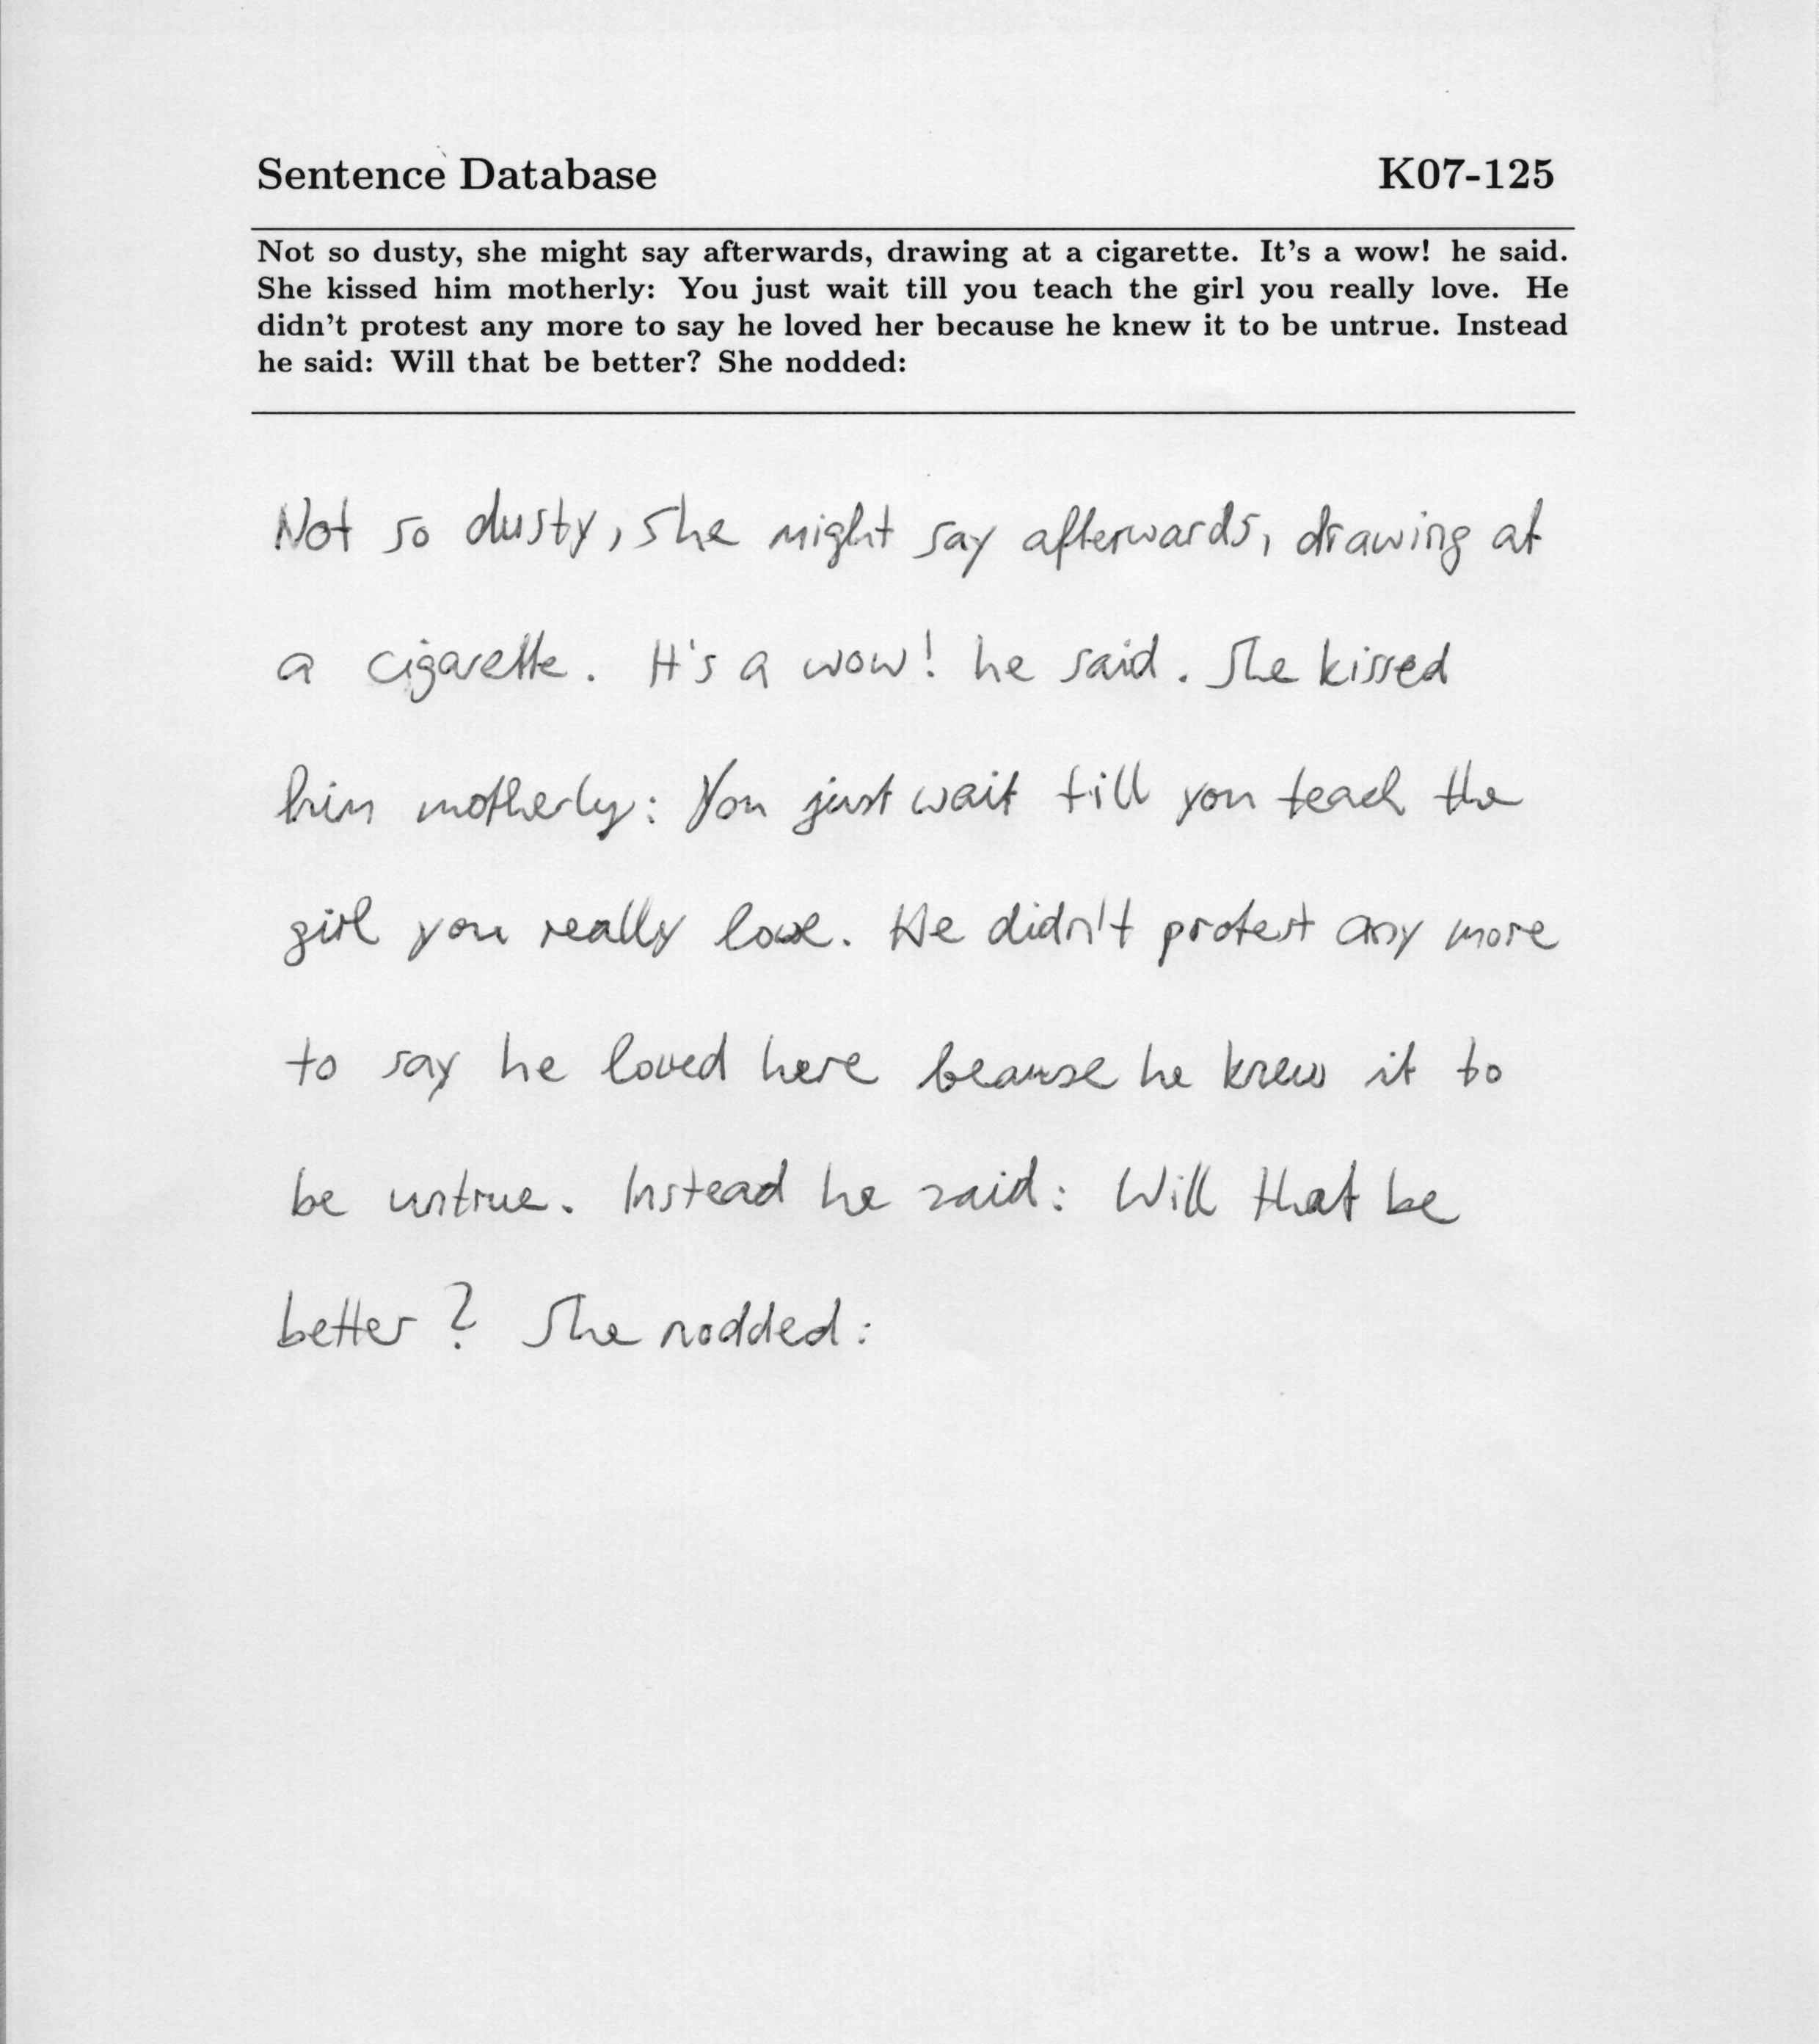 Sentence Database K07-125
Not so dusty, she might say afterwards, drawing at a cigarette. It's a wow! he said.
She kissed him motherly: You just wait till you teach the girl you really love. He
didn't protest any more to say he loved her because he knew it to be untrue. Instead
he said: Will that be better? She nodded:
Not so dusty, she might say afterwards, drawing at
a cigarette. It's a wow! he said. She kissed
him motherly: You just wait till you teach the
girl you really love. He didn't protest any more
to say he loved here beause he knew it to
be untrue. Instead he said: Will that be
better? She nodded: